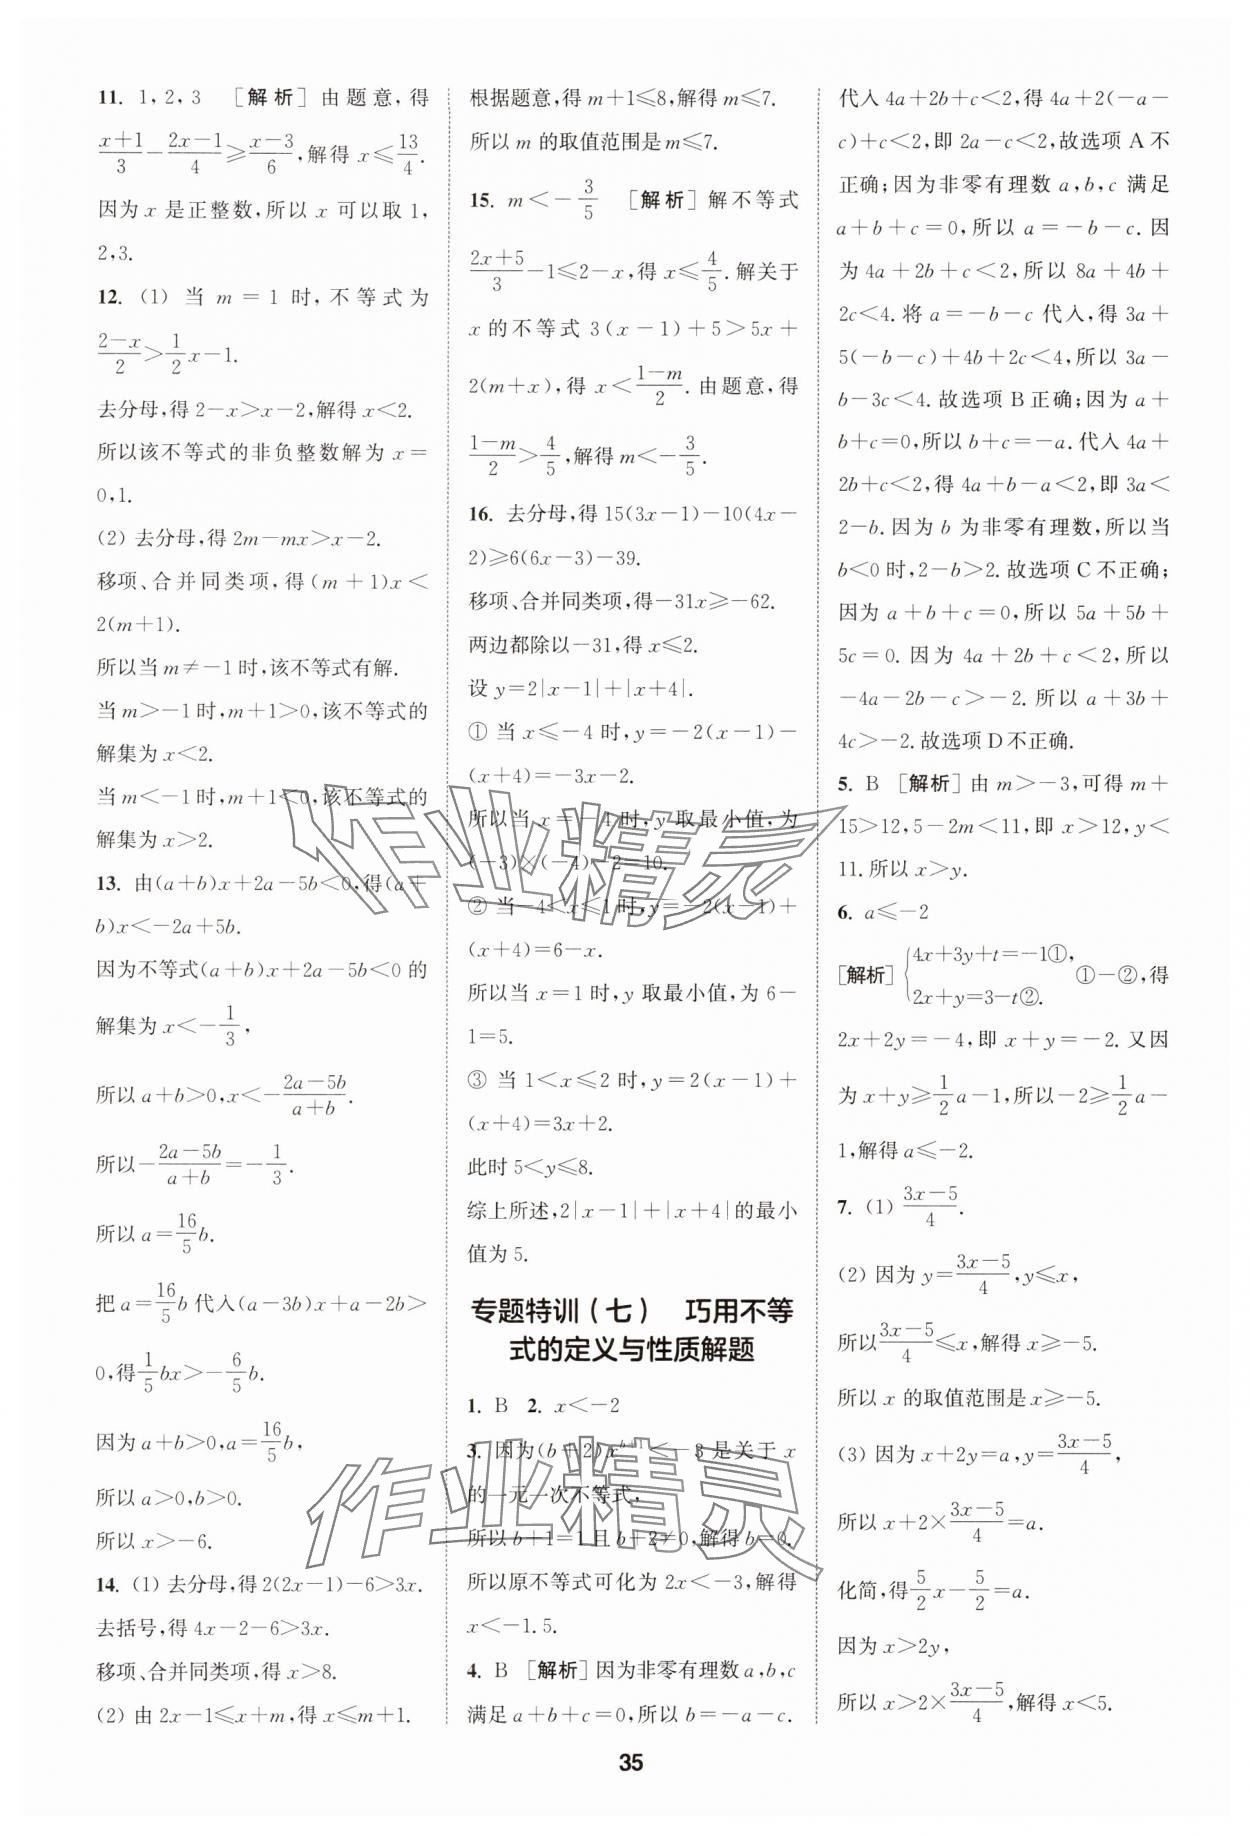 11. 1,2,3 [解析] 由题意,得
(x+1)/3-(2x-1)/4≥(x-3)/6,解得 x≤13/4.
因为 x 是正整数,所以 x 可以取 1,
2,3.
12. (1) 当 m=1 时,不等式为
(2-x)/2>1/2x-1.
去分母,得 2-x>x-2,解得 x<2.
所以该不等式的非负整数解为 x=
0,1.
(2) 去分母,得 2m-mx>x-2.
移项、合并同类项,得 (m+1)x<
2(m+1).
所以当 m≠-1 时,该不等式有解.
当 m>-1 时,m+1>0,该不等式的
解集为 x<2.
当 m<-1 时,m+1<0,该不等式的
解集为 x>2.
13. 由(a+b)x+2a-5b<0,得(a+
b)x<-2a+5b.
因为不等式(a+b)x+2a-5b<0 的
解集为 x<-1/3,
所以 a+b>0,x<-(2a-5b)/(a+b).
所以-(2a-5b)/(a+b)=-1/3.
所以 a=16/5b.
把 a=16/5b 代入(a-3b)x+a-2b>
0,得1/5bx>-6/5b.
因为 a+b>0,a=16/5b,
所以 a>0,b>0.
所以 x>-6.
14. (1) 去分母,得 2(2x-1)-6>3x.
去括号,得 4x-2-6>3x.
移项、合并同类项,得 x>8.
(2) 由 2x-1≤x+m,得 x≤m+1.
根据题意,得 m+1≤8,解得 m≤7.
所以 m 的取值范围是 m≤7.
15. m<-3/5 [解析] 解不等式
(2x+5)/3-1≤2-x,得 x≤4/5.解关于
x 的不等式 3(x-1)+5>5x+
2(m+x),得 x<(1-m)/2.由题意,得
(1-m)/2>4/5,解得 m<-3/5.
16. 去分母,得 15(3x-1)-10(4x-
2)≥6(6x-3)-39.
移项、合并同类项,得-31x≥-62.
两边都除以-31,得 x≤2.
设 y=2|x-1|+|x+4|.
① 当 x≤-4 时,y=-2(x-1)-
(x+4)=-3x-2.
所以当 x=-4 时,y 取最小值,为
(-3)×(-4)-2=10.
② 当-4<x≤1 时,y=-2(x-1)+
(x+4)=6-x.
所以当 x=1 时,y 取最小值,为 6-
1=5.
③ 当 1<x≤2 时,y=2(x-1)+
(x+4)=3x+2.
此时 5<y≤8.
综上所述,2|x-1|+|x+4|的最小
值为 5.
专题特训(七) 巧用不等
式的定义与性质解题
1. B 2. x<-2
3. 因为(b+2)x^(b+1)<-3 是关于 x
的一元一次不等式,
所以 b+1=1 且 b+2≠0,解得 b=0.
所以原不等式可化为 2x<-3,解得
x<-1.5.
4. B [解析] 因为非零有理数 a,b,c
满足 a+b+c=0,所以 b=-a-c.
代入 4a+2b+c<2,得 4a+2(-a-
c)+c<2,即 2a-c<2,故选项 A 不
正确;因为非零有理数 a,b,c 满足
a+b+c=0,所以 a=-b-c.因
为 4a+2b+c<2,所以 8a+4b+
2c<4.将 a=-b-c 代入,得 3a+
5(-b-c)+4b+2c<4,所以 3a-
b-3c<4.故选项 B 正确;因为 a+
b+c=0,所以 b+c=-a.代入 4a+
2b+c<2,得 4a+b-a<2,即 3a<
2-b.因为 b 为非零有理数,所以当
b<0 时,2-b>2.故选项 C 不正确;
因为 a+b+c=0,所以 5a+5b+
5c=0.因为 4a+2b+c<2,所以
-4a-2b-c>-2.所以 a+3b+
4c>-2.故选项 D 不正确.
5. B [解析] 由 m>-3,可得 m+
15>12,5-2m<11,即 x>12,y<
11.所以 x>y.
6. a≤-2
[解析] {4x+3y+t=-1①, 2x+y=3-t②. ①-②,得
2x+2y=-4,即 x+y=-2.又因
为 x+y≥1/2a-1,所以-2≥1/2a-
1,解得 a≤-2.
7. (1) (3x-5)/4.
(2) 因为 y=(3x-5)/4,y≤x,
所以(3x-5)/4≤x,解得 x≥-5.
所以 x 的取值范围是 x≥-5.
(3) 因为 x+2y=a,y=(3x-5)/4,
所以 x+2×(3x-5)/4=a.
化简,得5/2x-5/2=a.
因为 x>2y,
所以 x>2×(3x-5)/4,解得 x<5.
35
作业精灵
作业精灵